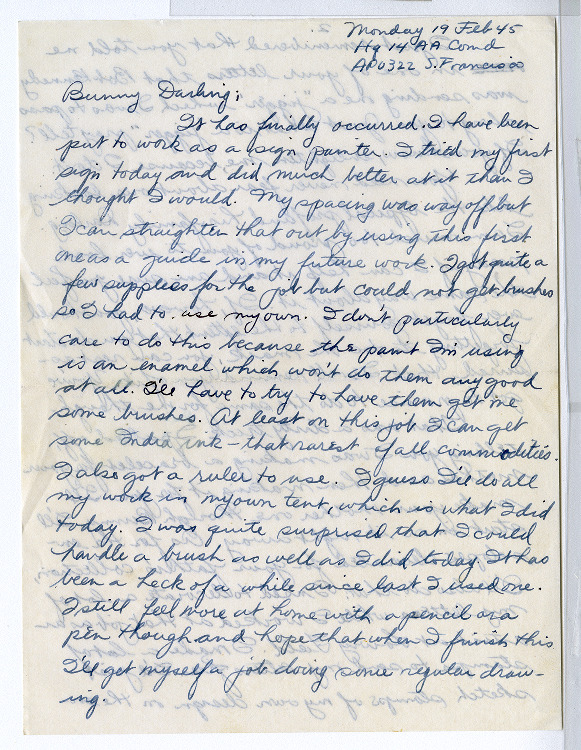 Monday 19 Feb 45
Hq 14 AA Comd
APO 322 S. Francisco
Bunny Darling;
It has finally occurred. I have been
put to work as a sign painter. I tried my first
sign today and did much better at it than I
thought I would. My spacing was way off but
I can straighten that out by using this first
one as a guide in my future work. I got quite a
few supplies for the job but could not get brushes
so I had to use my own. I don't particularly
care to do this because the paint I'm using
is an enamel which won't do them any good
at all. I'll have to try to have them get me
some brushes. At least on this job I can get
some India ink – that rarest of all commodities.
I also got a ruler to use. I guess I'll do all
my work in my own tent, which is what I did
today. I was quite surprised that I could
handle a brush as well as I did today. It has
been a heck of a while since last I used one.
I still feel more at home with a pencil or a
pen though and hope that when I finish this
I'll get myself a job doing some regular draw-
ing.